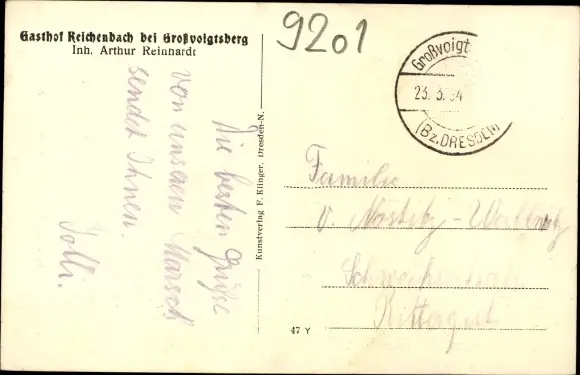 Gasthof Reichenbach bei Großvoigtsberg
Inh. Arthur Reinhardt
9201
Großvoigt
23. 3. 34
(Bz. DRESDEN)
Die besten Grüße
von unserem Marsch
sendet Ihnen.
Kunstverlag F. Klinger, Dresden-N.
Familie
v. Nostitz-Wallwitz
Rittergut
47 Y